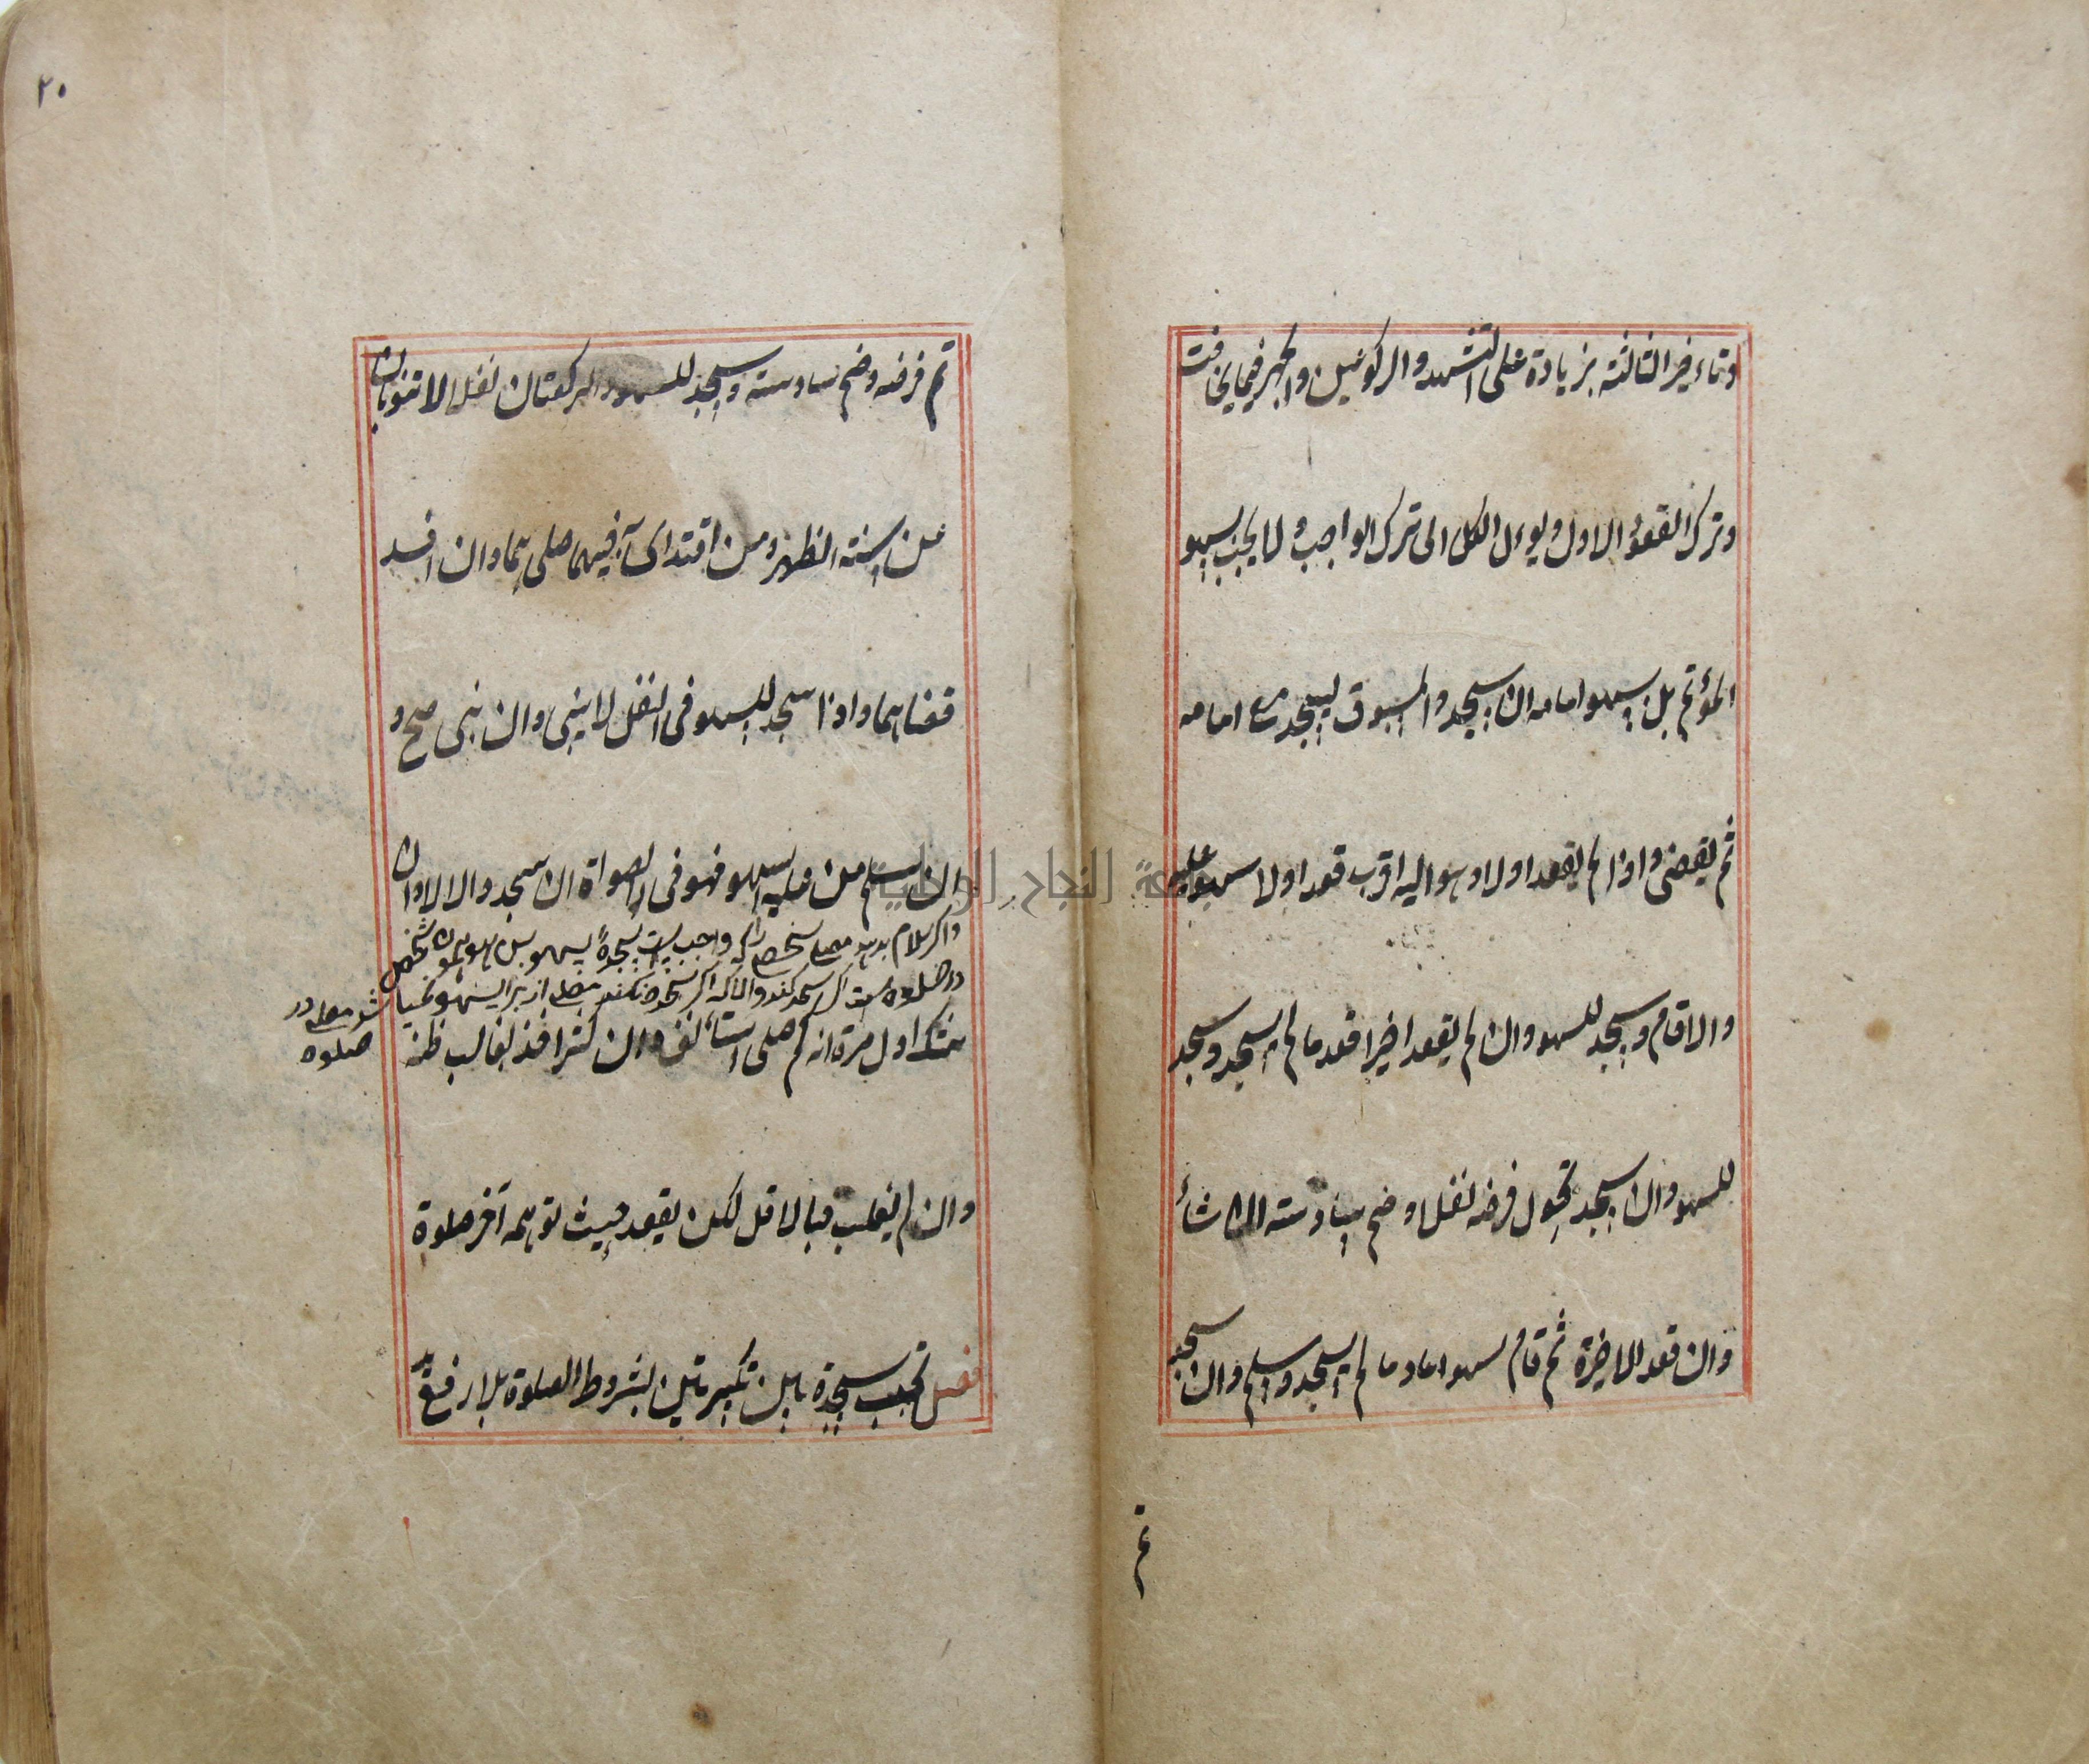 وتاءخير الثالثة بزيادة على التشهد والركوعين والجهر فيما يخافت
وترك القعود الاول ويوءل الكل الى ترك الواجب ولا يجب بسهو
المؤتم بل بسهو امامه ان سجد والمسبوق يسجد مع امامه
ثم يقضى واذا لم يقعد اولا وهو اليه اقرب قعد ولا سهو عليه
والا قام وسجد للسهو وان لم يقعد اخيرا قعد ما لم يسجد وسجد
للسهو وان سجد تحول فرضه نفلا وضم سادسة ان شاء
وان قعد الاخيرة ثم قام سهوا عاد ما لم يسجد وسلم وان سجد
تم
٢٠
تم فرضه وضم سادسة وسجد للسهو والركعتان نفل لا تنوبان
عن سنة الظهر ومن اقتدى به فيهما صلى هما وان افسد
قضاهما واذا سجد للسهو فى النفل لا يبنى وان بنى صح و
ان سلم من عليه السهو فهو فى الصلواة ان سجد والا لا وان
واكر سلام بدهد شخص كه واجب است سجده سهو پس
در صلوة است اكر سجد كند والا اكر سجده نكند
صلوه
شك اول مرة انه كم صلى استأنف وان كثر اخذ بغالب ظنه
وان لم يغلب فبالاقل لكن يقعد حيث توهمه آخر صلوة
فصل تجب سجدة بين تكبيرتين بشروط الصلوة بلا رفع يد
جامعة النجاح الوطنية